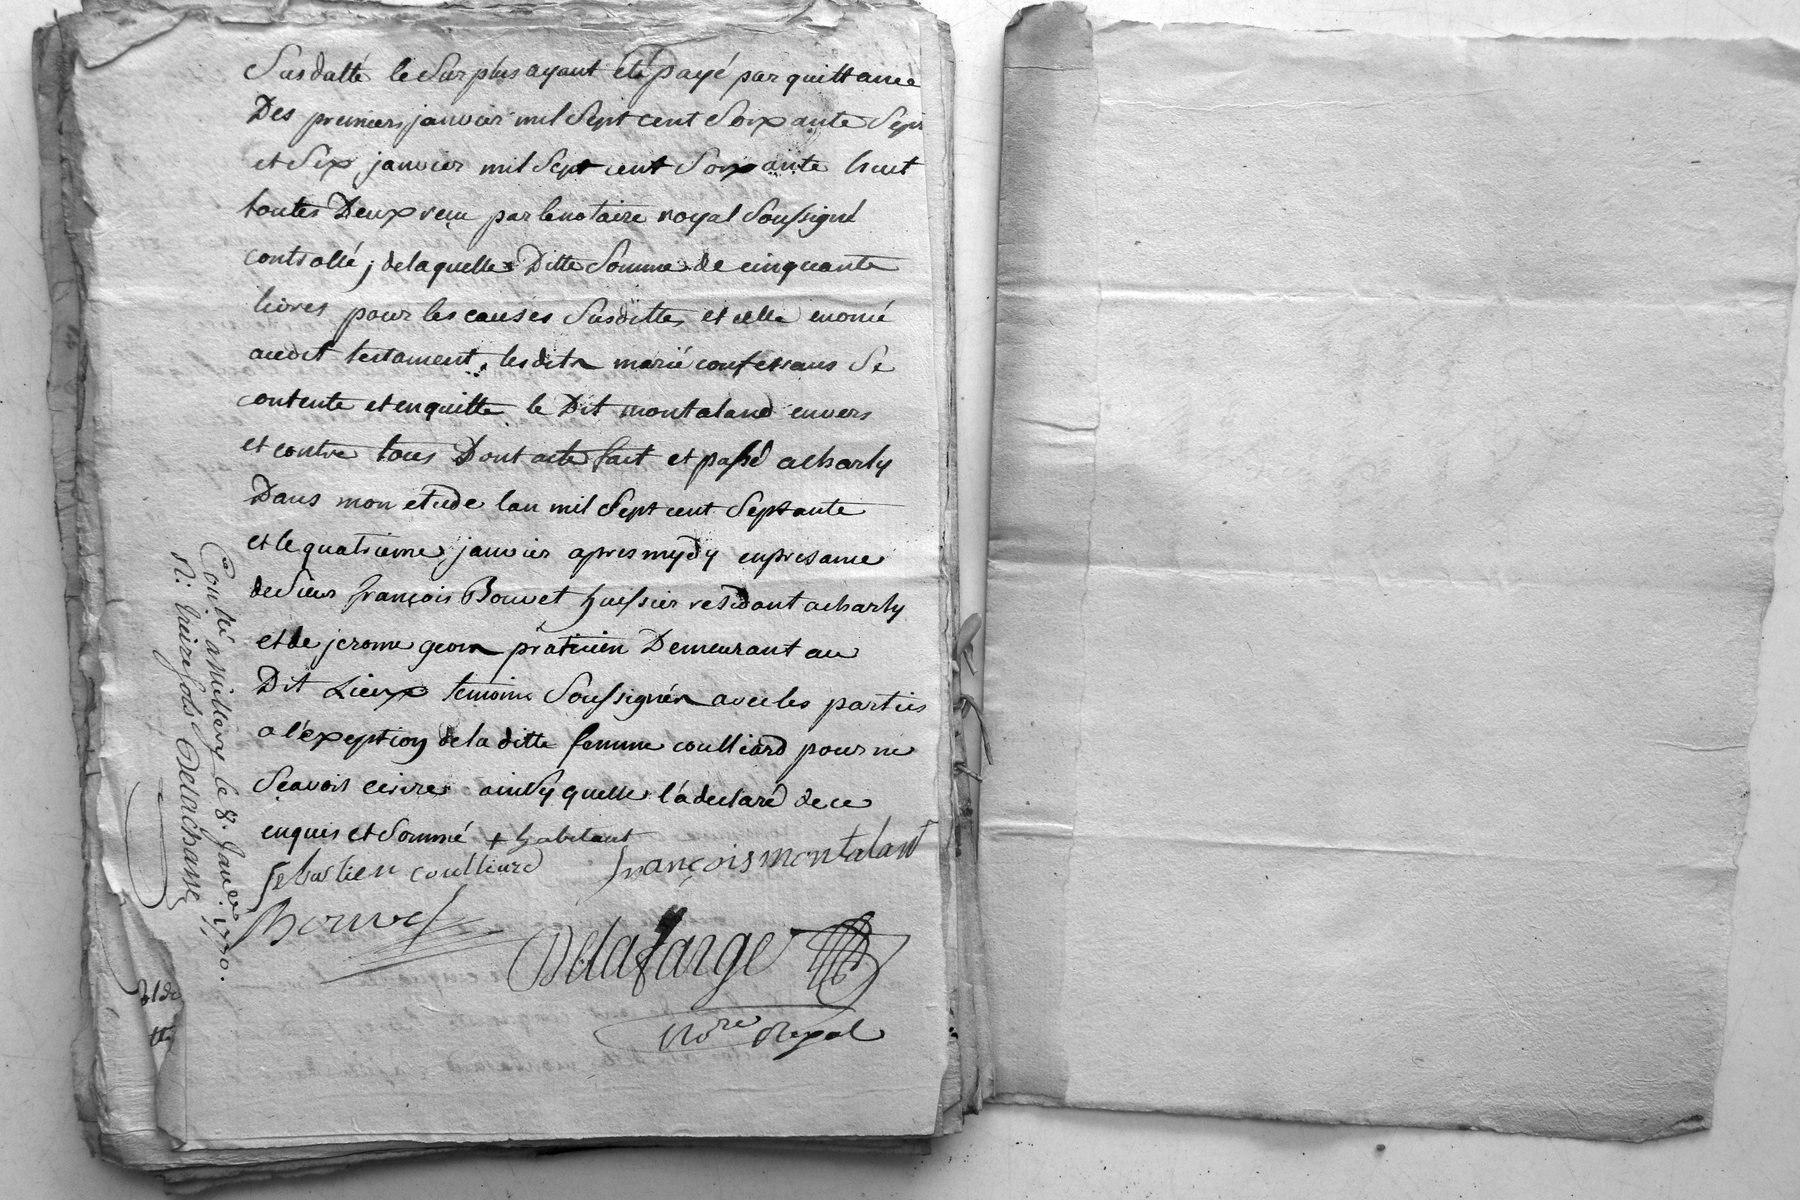 Susdatté le Surplus ayant eté payé par quittance
Des premiers janvier mil Sept cent Soixante Sept
et Six janvier mil Sept cent Soixante huit
toutes Deux reçu par le notaire royal Soussigné
controllé ; de laquelle Ditte Somme de cinquante
livres pour les causes Susdittes et celle enoncé
audit testament, les dits marié confessans Se
contente et en quitte le Dit montaland envers
et contre tous Dont acte fait et passé a charly
Dans mon etude lan mil Sept cent Septante
et le quatrieme janvier apres mydy en presance
de Sieur françois Bouvet huissier residant a charly
et de jerome geom praticien Demeurant au
Dit Lieux temoins Soussignés avec les parties
a l'exeption de la ditte femme coulliard pour ne
Scavoir ecrire ainsy quelle l'a declaré de ce
enquis et Sommé + habitant
Sebastien coulliard françois montaland
Bouvet
Delafarge
No.re Royal
Con.lé a Millery le 8. Janv.er 1770.
R: treize sols Delachasse